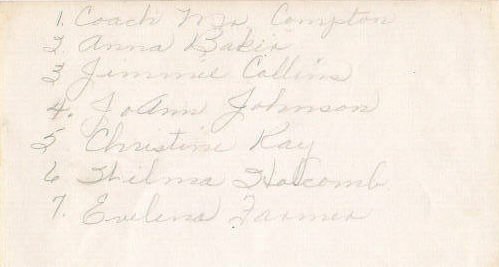 1. Coach Mrs. Compton
2. Anna Baker
3 Jimmie Collins
4. JoAnn Johnson
5 Christine Kay
6 Thelma Holcomb
7. Evelena Farmer